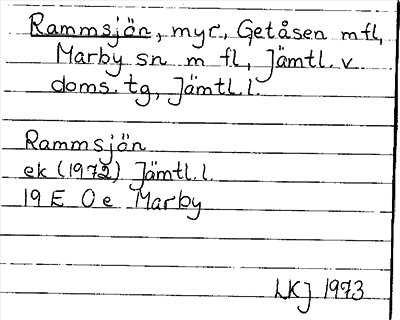 Rammsjön, myr, Getåsen mfl,
Marby sn m fl, Jämtl. v.
doms. tg, Jämtl.l.
Rammsjön
ek (1972) Jämtl.l.
19 E 0 e Marby
LKJ 1973